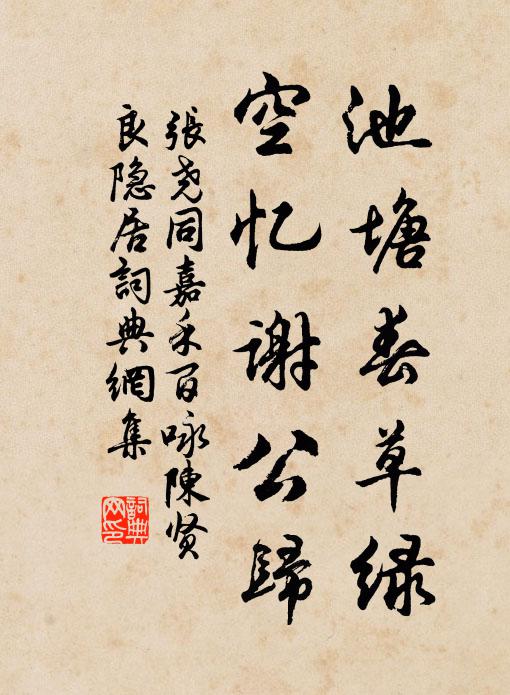 池塘春草绿
空忆谢公歸
張尧同嘉禾百咏陳贤
良隐居詞典網集
詞典
网印